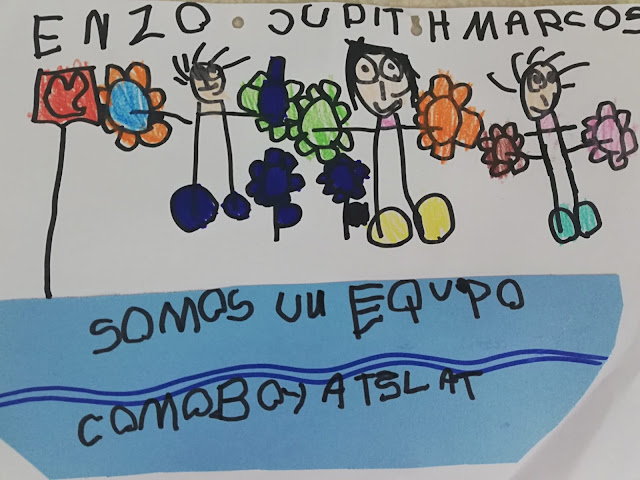 ENZO · JUDIT H MARCOS
SOMOS UN EQUPO
COMO BOY ATSLAT